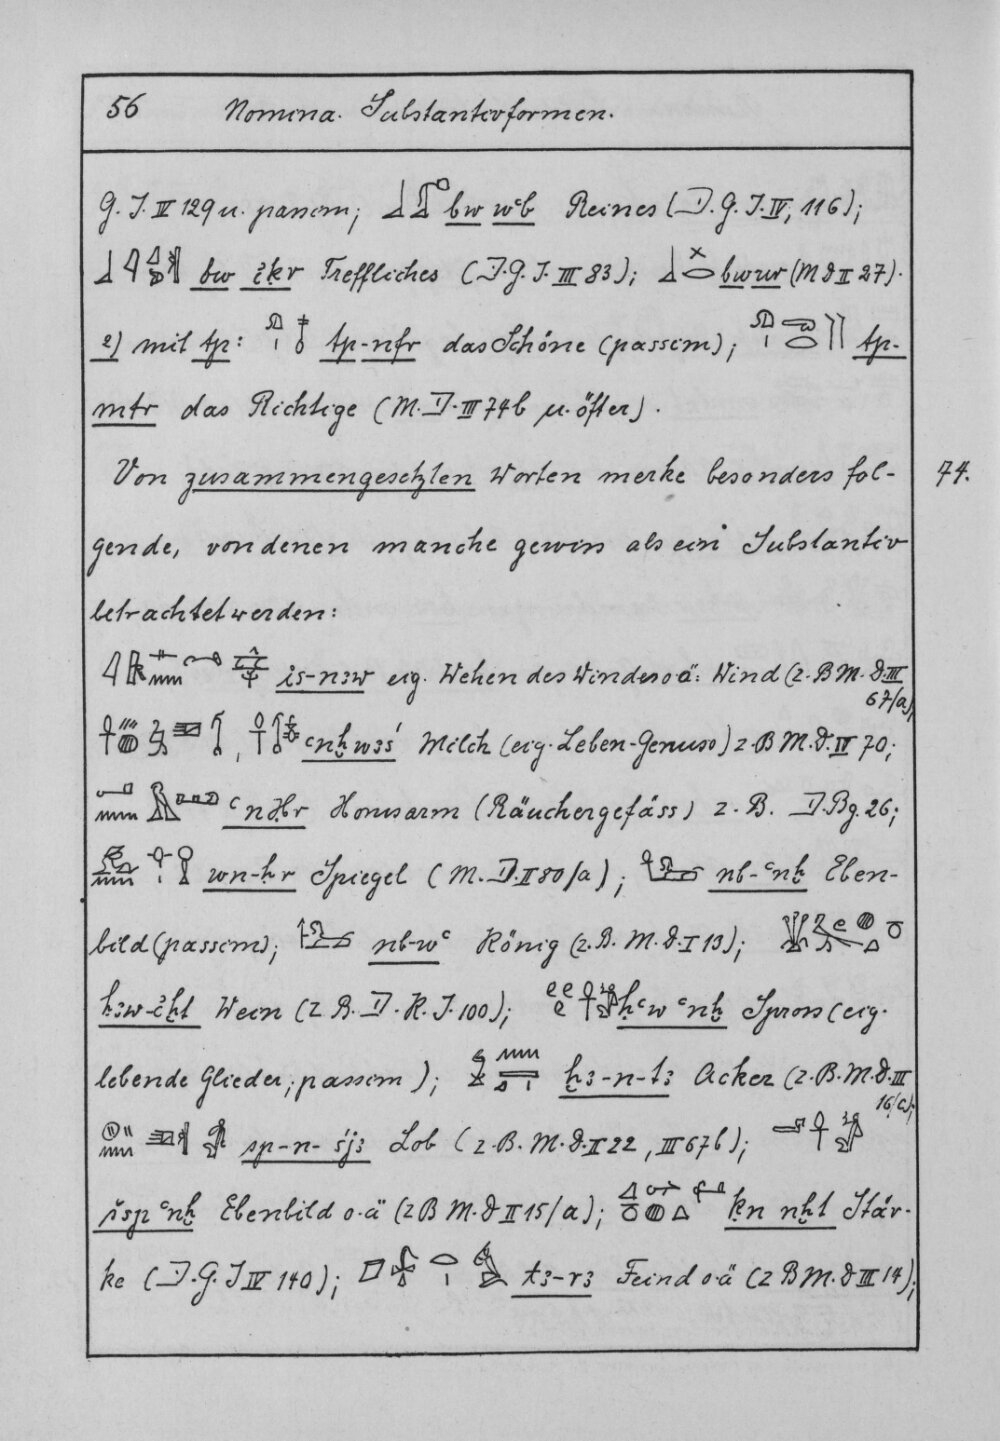 56 Nomina. Substantivformen.
G. I. IV 129 u. passim; bw wꜥb Reines (D. G. I. IV, 116);
bw ἰḳr Treffliches (D. G. I. III 83); bw wr (M D II 27).
2) mit tp: tp-nfr das Schöne (passim); tp-
mtr das Richtige (M. D. III 74b u. öfter).
Von zusammengesetzten Worten merke besonders fol- 74.
gende, von denen manche gewiss als ein Substantiv
betrachtet werden:
is-nꜣw eig. Wehen des Windes o.ä: Wind (z. B M. D. III
67/a),
ꜥnḫ wꜣś Milch (eig. Leben-Genuss) z. B M. D. IV 70;
ꜥn Ḥr Horusarm (Räuchergefäss) z. B. D. Bg. 26;
wn-ḥr Spiegel (M. D. II 80/a); nb-ꜥnḫ Eben-
bild (passim); nb-wꜥ König (z. B. M. D. I 13);
ḫꜣw-ἰḫt Wein (z B. D. R. I. 100); ḥꜥw ꜥnḫ Spross (eig.
lebende Glieder, passim); ḫꜣ-n-tꜣ Acker (z. B. M. D. III
16/c);
sp-n-śjꜣ Lob (z. B. M. D. II 22, III 67b);
šsp ꜥnḫ Ebenbild o.ä (z B M. D II 15/a); ḳn nḫt Stär-
ke (D. G. I IV 140); tꜣ-rꜣ Feind o.ä (z B M. D III 14);